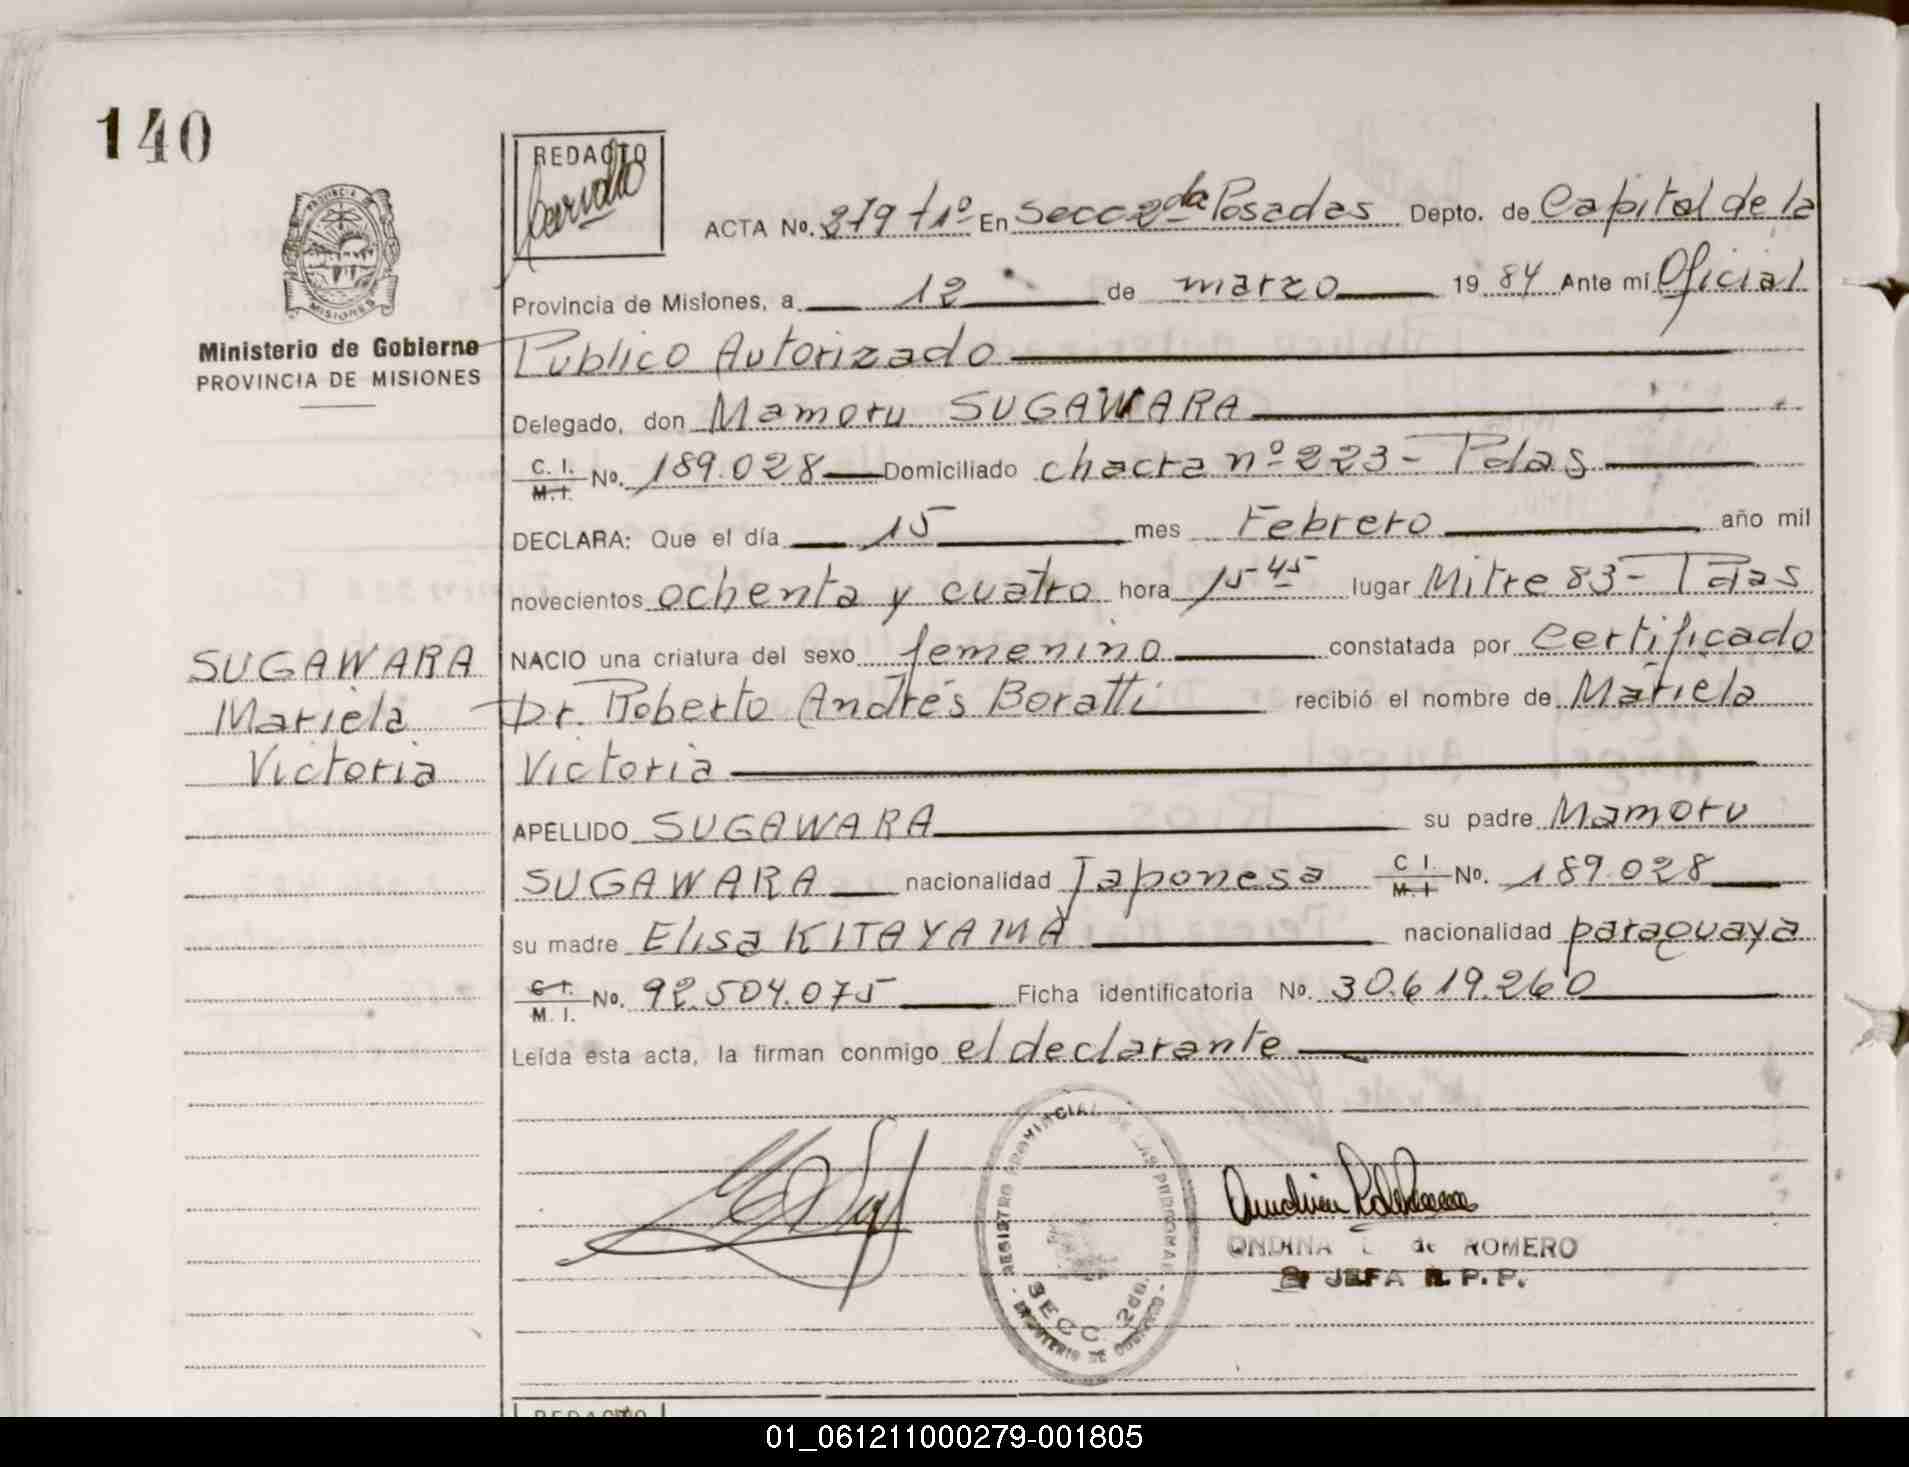 140
REDACTO
ACTA No. 279 T1º En Secc 2da Posadas Depto. de Capital de la
Provincia de Misiones, a 12 de marzo 1984 Ante mi Oficial
Ministerio de Gobierno
PROVINCIA DE MISIONES
Publico Autorizado
Delegado, don Mamoru SUGAWARA
C. I. M. I. No. 189.028 Domiciliado chacra nº 223 - Pdas
DECLARA: Que el día 15 mes Febrero año mil
novecientos ochenta y cuatro hora 15 45 lugar Mitre 83 - Pdas
SUGAWARA
Mariela
Victoria
NACIO una criatura del sexo femenino constatada por Certificado
Dr. Roberto Andrés Boratti recibió el nombre de Mariela
Victoria
APELLIDO SUGAWARA su padre Mamoru
SUGAWARA nacionalidad Japonesa C I. M. I No. 189.028
su madre Elisa KITAYAMA nacionalidad paraguaya
C I. M. I. No. 92.504.075 Ficha identificatoria No. 30.619.260
Leída esta acta, la firman conmigo el declarante
REGISTRO PROVINCIAL DE LAS PERSONAS
SECC. 2da.
MINISTERIO DE GOBIERNO
ONDINA de ROMERO
JEFA R. P. P.
REDACTO
01_061211000279-001805